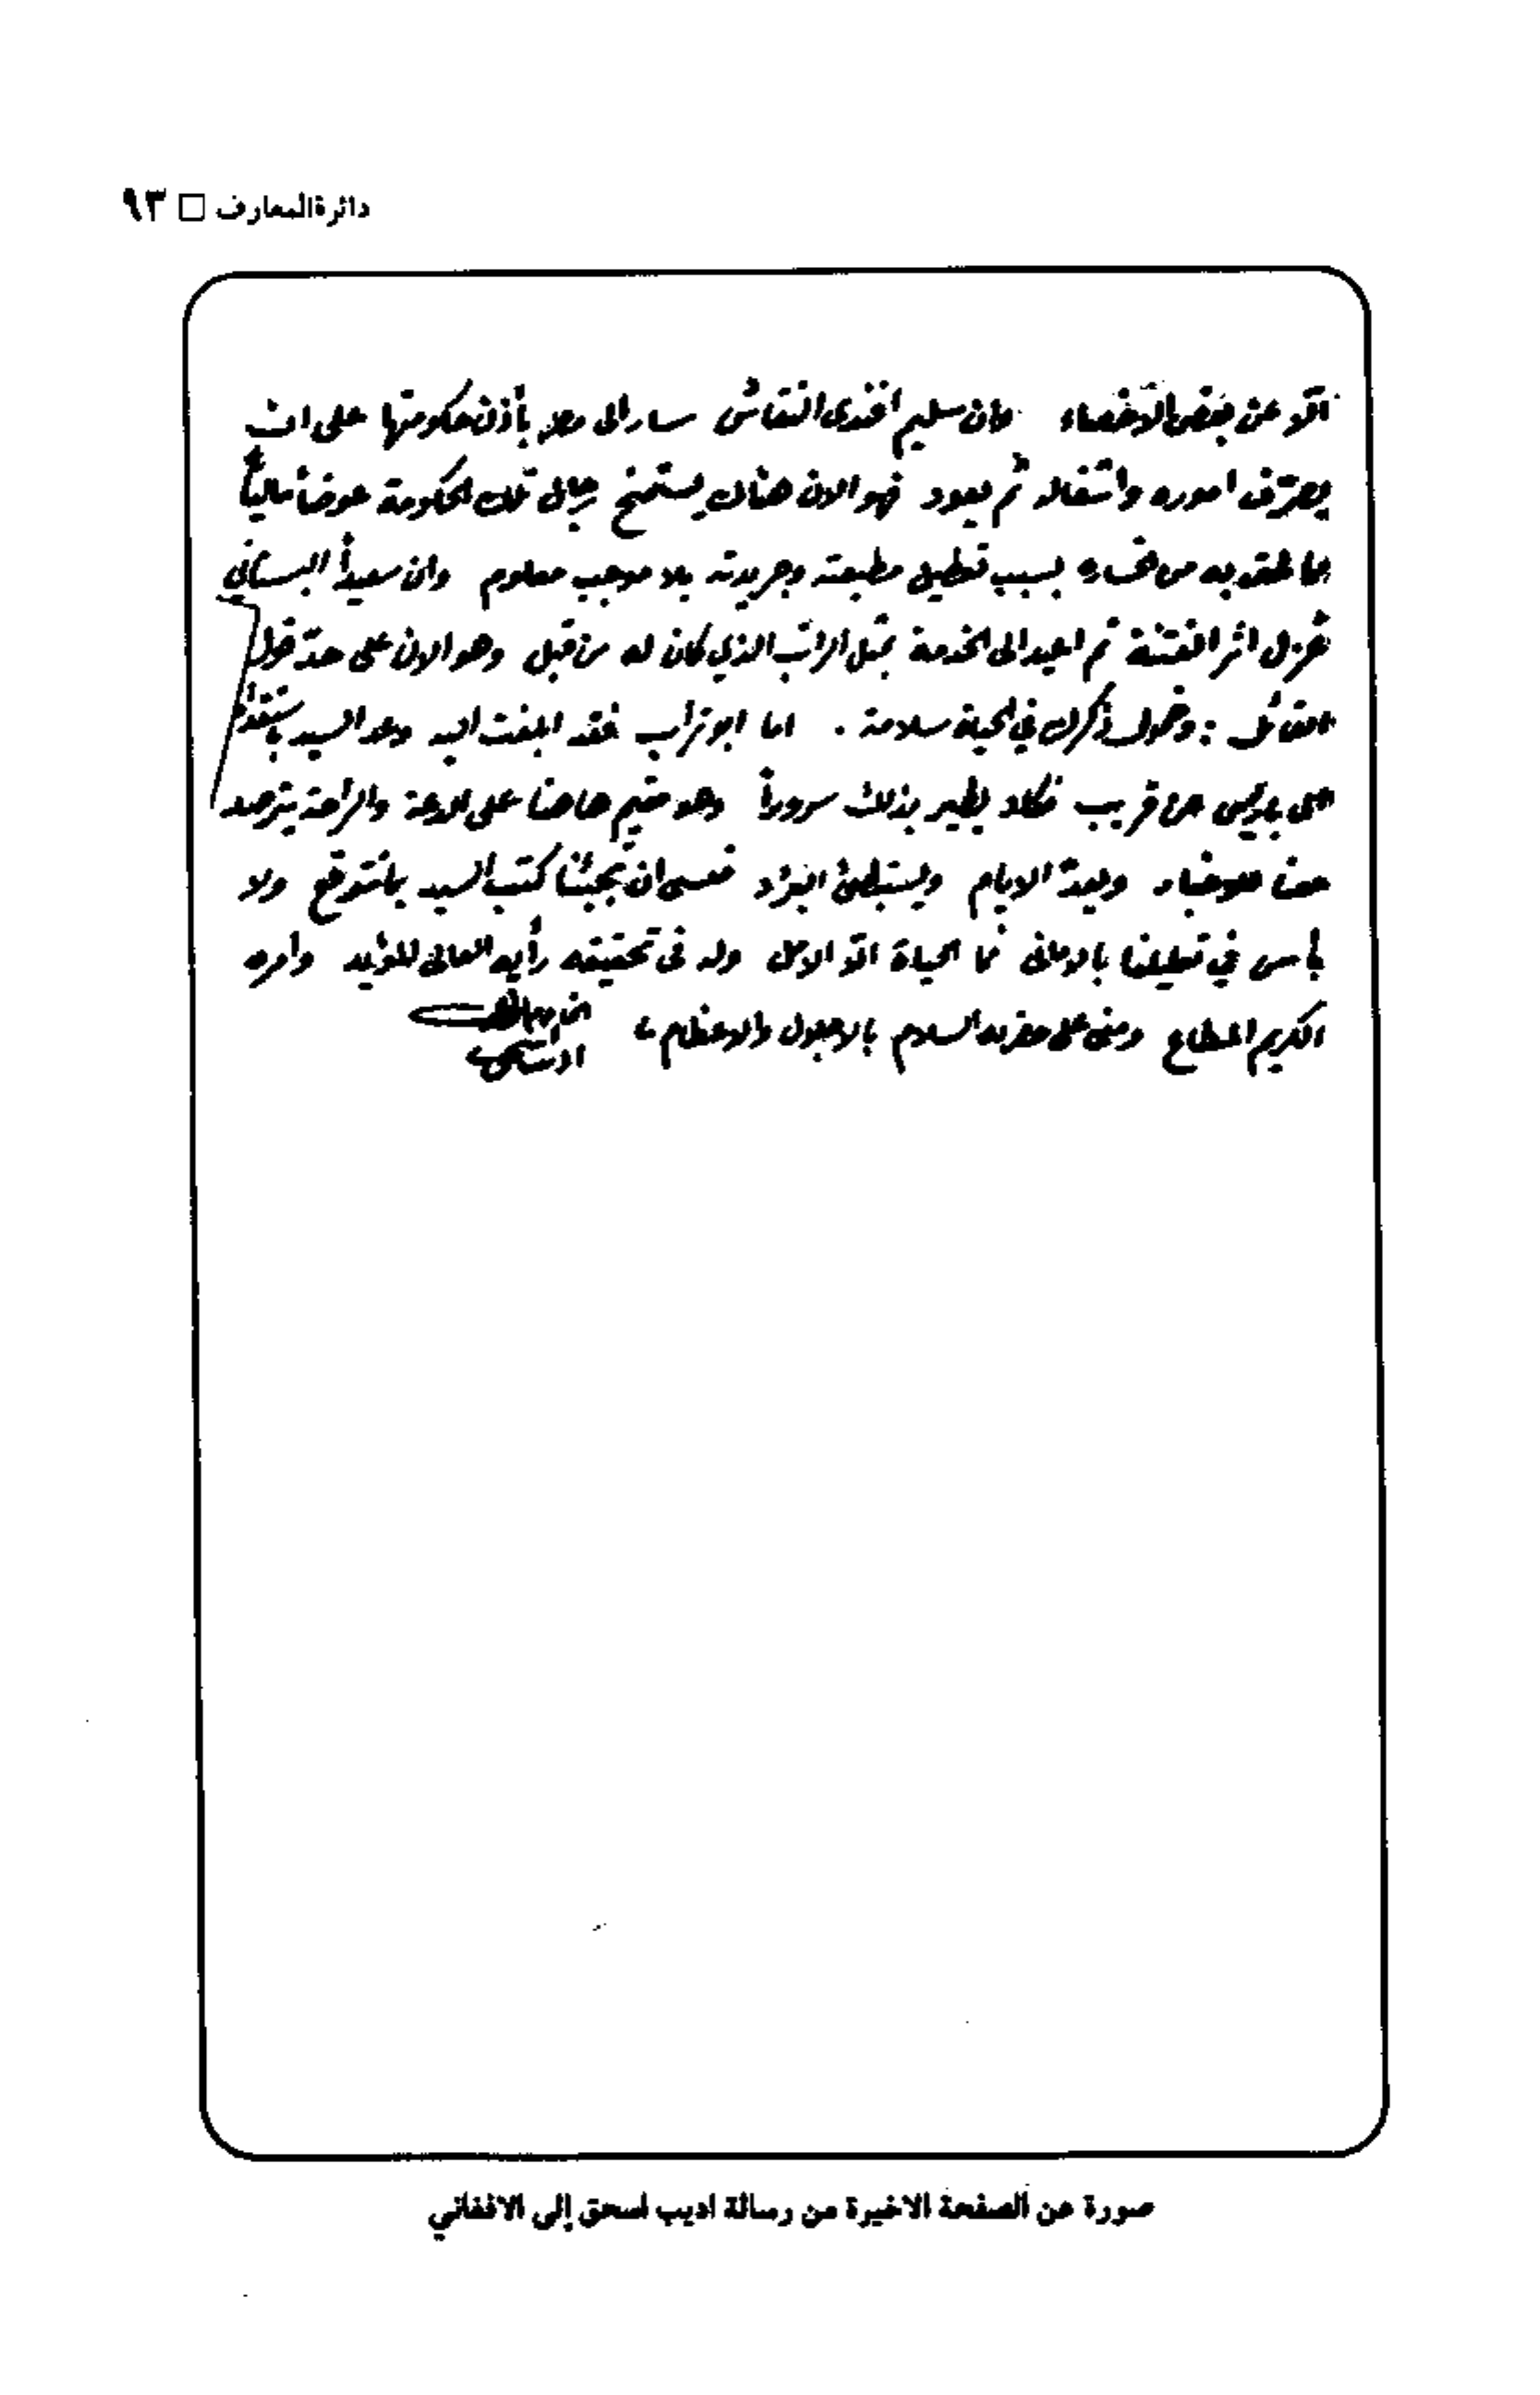 دائرة المعارف □ ٩٣
الا عن بعض الاخصاء وان سليم افندى النقاش سار الى مصر بأذن حكومتها على ان
يصرّف اموره واشغاله ثم يعود فهو الان هناك يستمنح تلك الحكومة عوضاً مالياً
عما لحق به من بسبب تعطيل مطبعته وجريدته بلا موجب معلوم وان سعيداً البستاني
عُزل اثر الفتنة ثم اعيد الى الخدمة بمثل الراتب الذي كان له من قبل وهو الان على حدّ قول
القائل : وخمول ذكرك في الحياة سلامة . اما ابو تراب فقد ابلغت اليه وعد السيد
الى باريس عن قريب فكاد يطير بذلك سروراً وهو مقيم هاهنا على والراحة يترصد
ويعدّ الايام ويستبطئ البرُد فعسى ان تجيئنا كتب السيد بالمتوقع ولا
بأس في تعليلنا بالاماني فما الحياة الا الامل وله فى تحقيقه رأيه العالى المؤيد وامره
الكريم المطاع ومنى على حضرته السلام بالاجلال والاعظام ،
اديب اسحق
صورة عن الصفحة الاخيرة من رسالة اديب اسحق إلى الافغاني